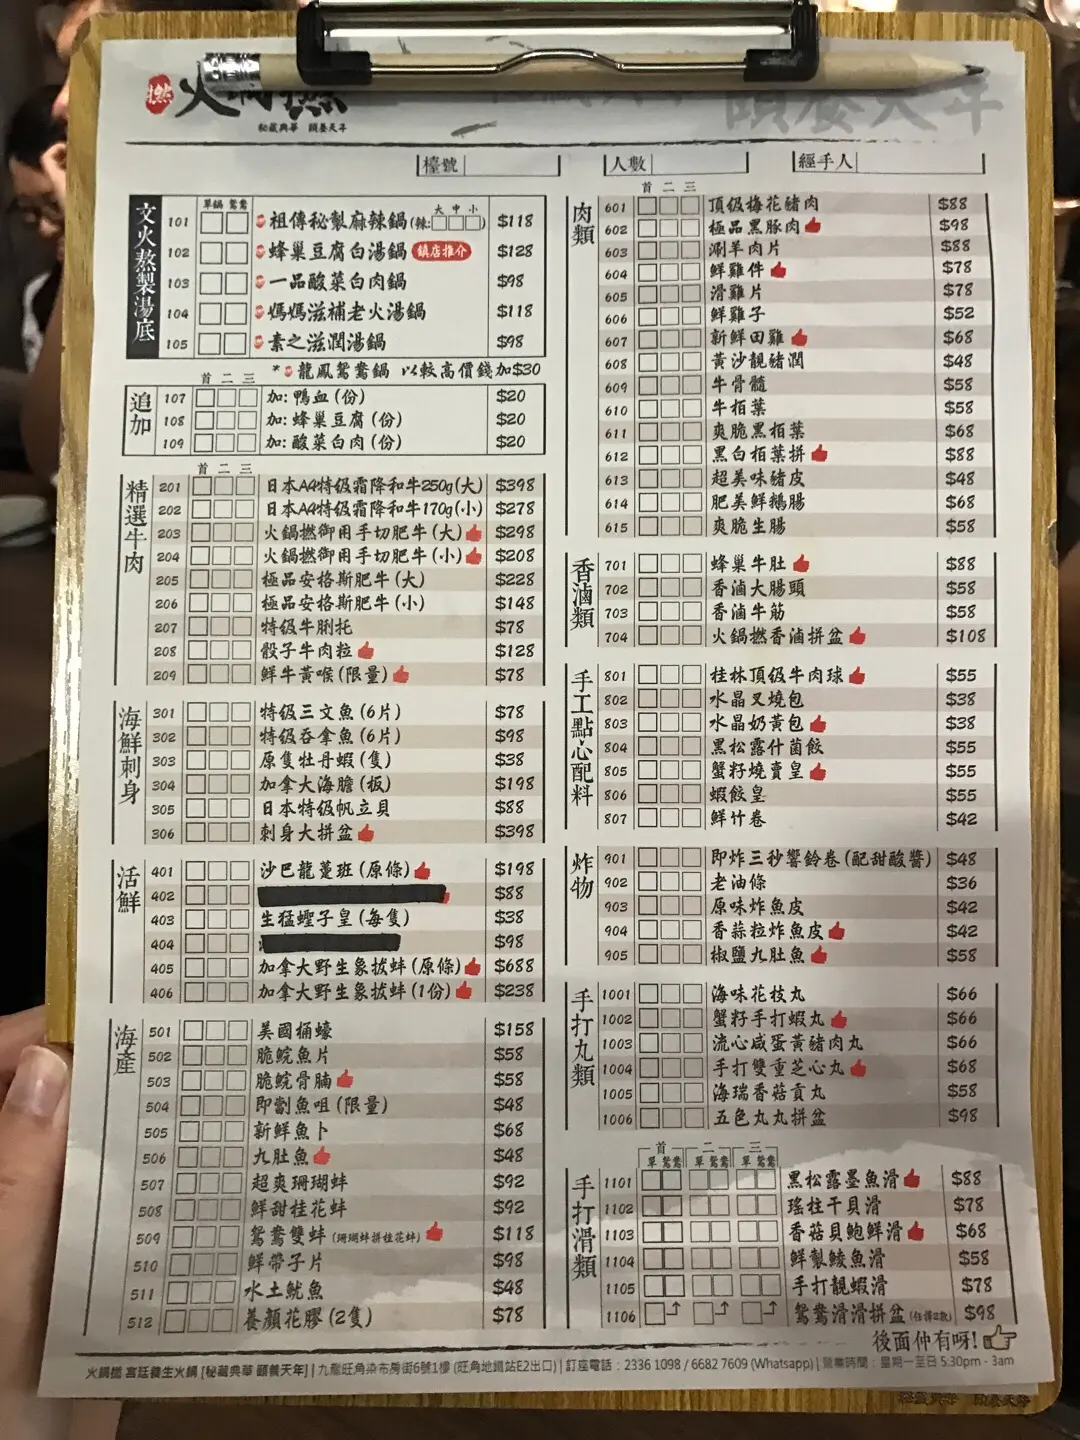 撚
秘藏典華 頤養天年
頤養天年
檯號
人數
經手人
文火熬製湯底
單鍋 鴛鴦
101 祖傳秘製麻辣鍋(辣: 大 中 小) $118
102 蜂巢豆腐白湯鍋 鎮店推介 $128
103 一品酸菜白肉鍋 $98
104 媽媽滋補老火湯鍋 $118
105 素之滋潤湯鍋 $98
* 龍鳳鴛鴦鍋 以較高價錢加$30
首 二 三
追加
107 加: 鴨血 (份) $20
108 加: 蜂巢豆腐 (份) $20
109 加: 酸菜白肉 (份) $20
首 二 三
精選牛肉
201 日本A4特級霜降和牛250g(大) $398
202 日本A4特級霜降和牛170g(小) $278
203 火鍋撚御用手切肥牛 (大) $298
204 火鍋撚御用手切肥牛 (小) $208
205 極品安格斯肥牛 (大) $228
206 極品安格斯肥牛 (小) $148
207 特級牛脷托 $78
208 骰子牛肉粒 $128
209 鮮牛黃喉 (限量) $78
海鮮刺身
301 特級三文魚 (6片) $78
302 特級吞拿魚 (6片) $98
303 原隻牡丹蝦 (隻) $38
304 加拿大海膽 (板) $198
305 日本特級帆立貝 $88
306 刺身大拼盆 $398
活鮮
401 沙巴龍躉班 (原條) $198
402 $88
403 生猛蟶子皇 (每隻) $38
404 $98
405 加拿大野生象拔蚌 (原條) $688
406 加拿大野生象拔蚌 (1份) $238
海產
501 美國桶蠔 $158
502 脆鯇魚片 $58
503 脆鯇骨腩 $58
504 即劏魚咀 (限量) $48
505 新鮮魚卜 $68
506 九肚魚 $48
507 超爽珊瑚蚌 $92
508 鮮甜桂花蚌 $92
509 鴛鴦雙蚌 (珊瑚蚌拼桂花蚌) $118
510 鮮帶子片 $98
511 水土魷魚 $48
512 養顏花膠 (2隻) $78
首 二 三
肉類
601 頂級梅花豬肉 $88
602 極品黑豚肉 $98
603 涮羊肉片 $88
604 鮮雞件 $78
605 滑雞片 $78
606 鮮雞子 $52
607 新鮮田雞 $68
608 黃沙靚豬潤 $48
609 牛骨髓 $58
610 牛栢葉 $58
611 爽脆黑栢葉 $68
612 黑白栢葉拼 $88
613 超美味豬皮 $48
614 肥美鮮鵝腸 $68
615 爽脆生腸 $58
香滷類
701 蜂巢牛肚 $88
702 香滷大腸頭 $58
703 香滷牛筋 $58
704 火鍋撚香滷拼盆 $108
手工點心配料
801 桂林頂級牛肉球 $55
802 水晶叉燒包 $38
803 水晶奶黃包 $38
804 黑松露什菌餃 $55
805 蟹籽燒賣皇 $55
806 蝦餃皇 $55
807 鮮竹卷 $42
炸物
901 即炸三秒響鈴卷 (配甜酸醬) $48
902 老油條 $36
903 原味炸魚皮 $42
904 香蒜粒炸魚皮 $42
905 椒鹽九肚魚 $58
手打丸類
1001 海味花枝丸 $66
1002 蟹籽手打蝦丸 $66
1003 流心咸蛋黃豬肉丸 $66
1004 手打雙重芝心丸 $68
1005 海瑞香菇貢丸 $58
1006 五色丸丸拼盆 $98
首 二 三
單 鴛鴦 單 鴛鴦 單 鴛鴦
手打滑類
1101 黑松露墨魚滑 $88
1102 瑤柱干貝滑 $78
1103 香菇貝鮑鮮滑 $68
1104 鮮製鯪魚滑 $58
1105 手打靚蝦滑 $78
1106 鴛鴦滑滑拼盆 (任擇2款) $98
後面仲有呀!
火鍋撚 宮廷養生火鍋 [秘藏典華 頤養天年] | 九龍旺角染布房街6號1樓 (旺角地鐵站E2出口) | 訂座電話 : 2336 1098 / 6682 7609 (Whatsapp) | 營業時間 : 星期一至日 5:30pm - 3am